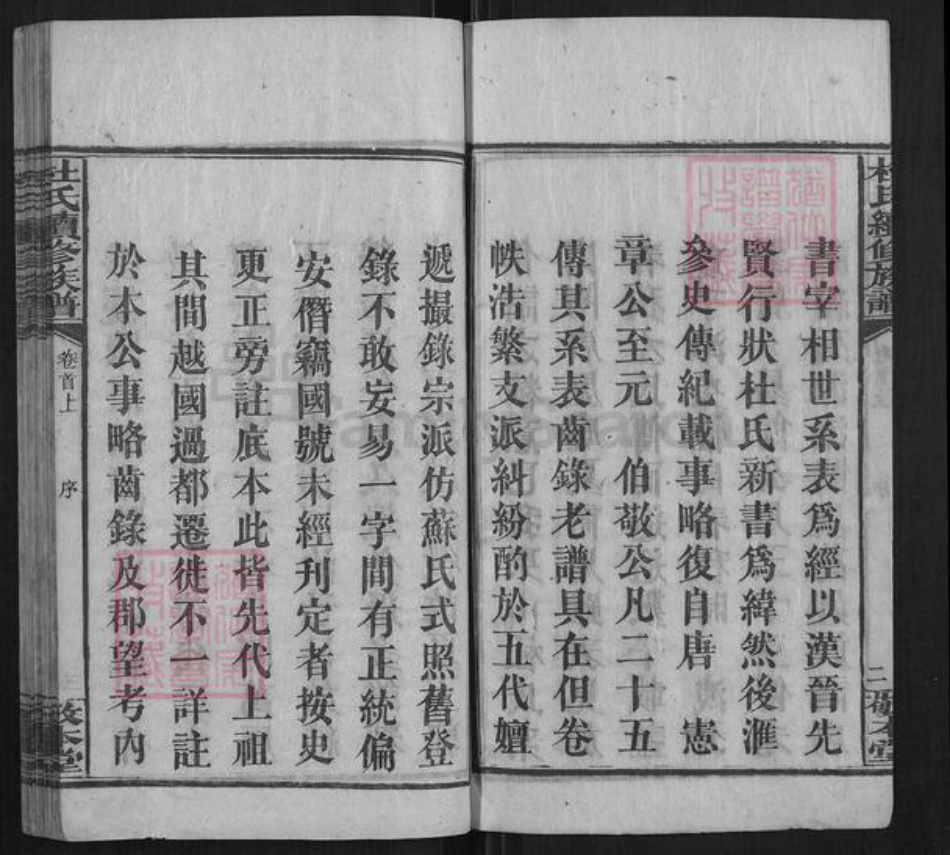 杜氏續修族譜
二
敬本堂
書宰相世系表爲經以漢晉先
賢行狀杜氏新書爲緯然後滙
參史傳紀載事略復自唐 憲
章公至元 伯敬公凡二十五
傳其系表齒錄老譜具在但卷
帙浩繁支派糾紛酌於五代嬗
遞撮錄宗派仿蘇氏式照舊登
錄不敢妄易一字間有正統偏
安僭竊國號未經刊定者按史
更正旁註底本此皆先代上祖
其間越國過都遷徙不一詳註
於本公事略齒錄及郡望考內
杜氏續修族譜
卷首上
序
敬本堂